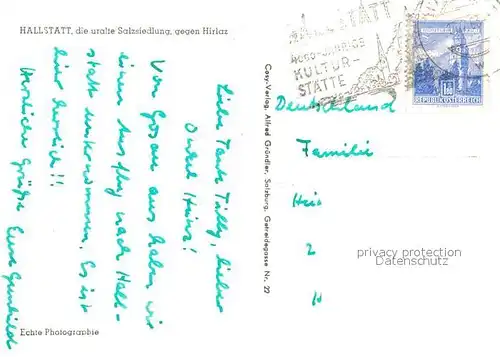 HALLSTATT, die uralte Salzsiedlung, gegen Hirlaz
Liebe Tante Tilly, lieber
Onkel Heinz!
Von Gosau aus haben wir
einen Ausflug nach Hall-
statt unternommen. Es ist
hier herrlich!!!
Herzliche Grüße Eure Gunhild
Echte Photographie
Cosy-Verlag, Alfred Gründler, Salzburg, Getreidegasse Nr. 22
HALLSTATT
KULTUR-
STÄTTE
REPUBLIK ÖSTERREICH
Deutschland
Familie
privacy protection
Datenschutz